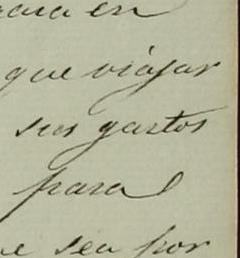 para en
que viajar
sus gastos
para
que sea por